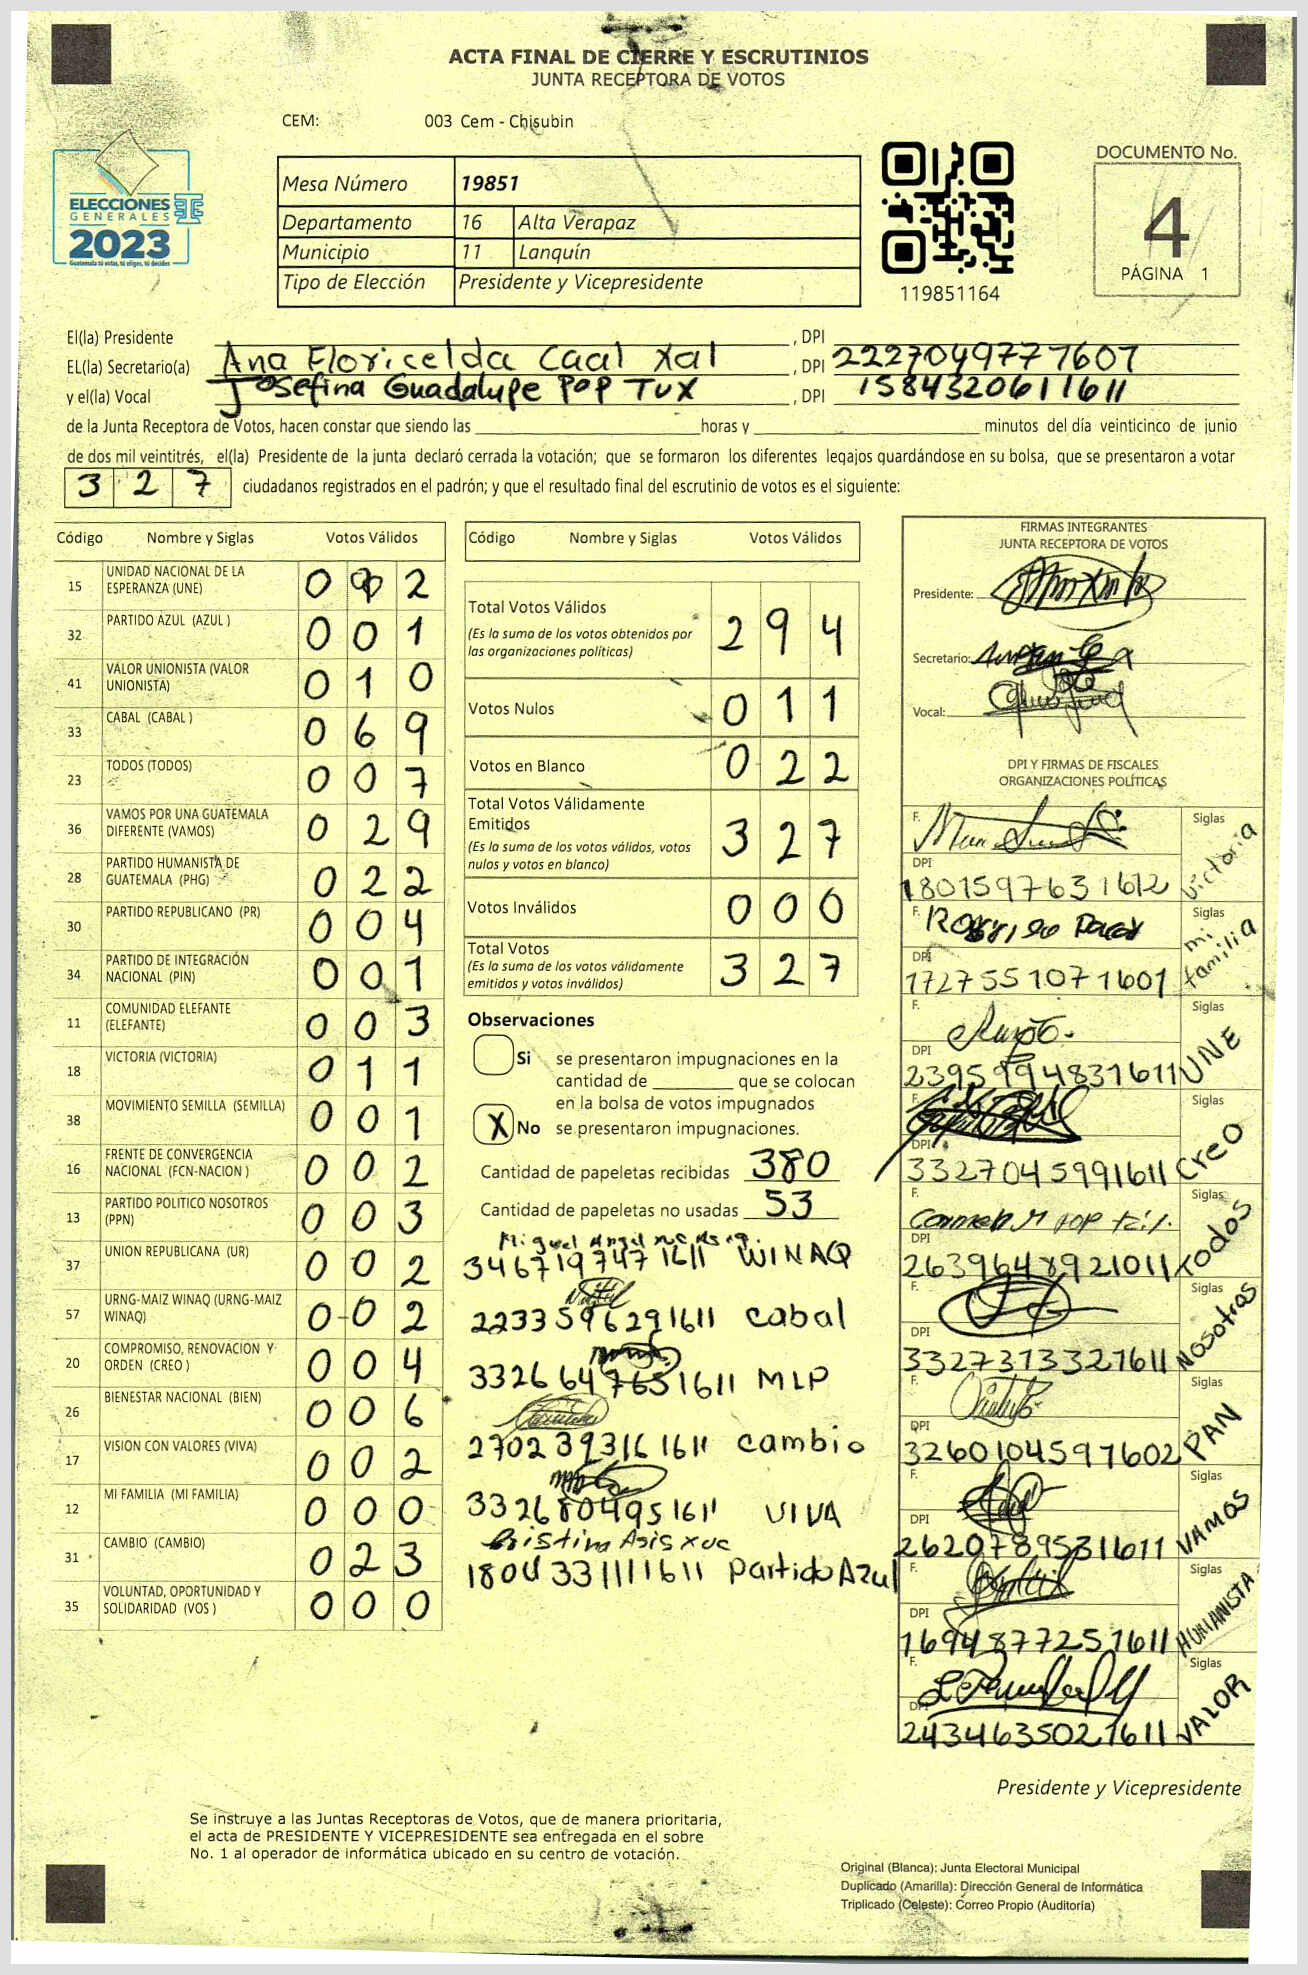 ACTA FINAL DE CIERRE Y ESCRUTINIOS
JUNTA RECEPTORA DE VOTOS
CEM: 003 Cem - Chisubin
ELECCIONES
GENERALES
2023
Guatemala tú votas, tú eliges, tú decides
Mesa Número 19851
Departamento 16 Alta Verapaz
Municipio 11 Lanquín
Tipo de Elección Presidente y Vicepresidente
119851164
DOCUMENTO No.
4
PÁGINA 1
El(la) Presidente , DPI
EL(la) Secretario(a) Ana Floricelda Caal Xal , DPI 2227049777607
y el(la) Vocal Josefina Guadalupe POP TUX , DPI 1584320611611
de la Junta Receptora de Votos, hacen constar que siendo las horas y minutos del día veinticinco de junio
de dos mil veintitrés, el(la) Presidente de la junta declaró cerrada la votación; que se formaron los diferentes legajos quardándose en su bolsa, que se presentaron a votar
3 2 7 ciudadanos registrados en el padrón; y que el resultado final del escrutinio de votos es el siguiente:
Código Nombre y Siglas Votos Válidos
15 UNIDAD NACIONAL DE LA ESPERANZA (UNE) 0 2
32 PARTIDO AZUL (AZUL ) 0 0 1
41 VALOR UNIONISTA (VALOR UNIONISTA) 0 1 0
33 CABAL (CABAL ) 0 6 9
23 TODOS (TODOS) 0 0 7
36 VAMOS POR UNA GUATEMALA DIFERENTE (VAMOS) 0 2 9
28 PARTIDO HUMANISTA DE GUATEMALA (PHG) 0 2 2
30 PARTIDO REPUBLICANO (PR) 0 0 4
34 PARTIDO DE INTEGRACIÓN NACIONAL (PIN) 0 0 1
11 COMUNIDAD ELEFANTE (ELEFANTE) 0 0 3
18 VICTORIA (VICTORIA) 0 1 1
38 MOVIMIENTO SEMILLA (SEMILLA) 0 0 1
16 FRENTE DE CONVERGENCIA NACIONAL (FCN-NACION ) 0 0 2
13 PARTIDO POLITICO NOSOTROS (PPN) 0 0 3
37 UNION REPUBLICANA (UR) 0 0 2
57 URNG-MAIZ WINAQ (URNG-MAIZ WINAQ) 0 0 2
20 COMPROMISO, RENOVACION Y ORDEN (CREO ) 0 0 4
26 BIENESTAR NACIONAL (BIEN) 0 0 6
17 VISION CON VALORES (VIVA) 0 0 2
12 MI FAMILIA (MI FAMILIA) 0 0 0
31 CAMBIO (CAMBIO) 0 2 3
35 VOLUNTAD, OPORTUNIDAD Y SOLIDARIDAD (VOS ) 0 0 0
Código Nombre y Siglas Votos Válidos
Total Votos Válidos 2 9 4
(Es la suma de los votos obtenidos por
las organizaciones políticas)
Votos Nulos 0 1 1
Votos en Blanco 0 2 2
Total Votos Válidamente
Emitidos 3 2 7
(Es la suma de los votos válidos, votos
nulos y votos en blanco)
Votos Inválidos 0 0 0
Total Votos 3 2 7
(Es la suma de los votos válidamente
emitidos y votos inválidos)
Observaciones
Si se presentaron impugnaciones en la
cantidad de que se colocan
en la bolsa de votos impugnados
X No se presentaron impugnaciones.
Cantidad de papeletas recibidas 380
Cantidad de papeletas no usadas 53
Miguel Angel
3467197471611 WINAQ
2233596291611 cabal
3326647651611 MLP
2702393161611 cambio
3326804951611 VIVA
Cristina Asis xuc
1804331111611 Partido Azul
FIRMAS INTEGRANTES
JUNTA RECEPTORA DE VOTOS
Presidente:
Secretario:
Vocal:
DPI Y FIRMAS DE FISCALES
ORGANIZACIONES POLÍTICAS
F. Siglas
DPI 1801597631612 victoria
F. Siglas
DPI 1727551071601 mi familia
F. Siglas
DPI 2395994831611 UNE
F. Siglas
DPI 3327045991611 Creo
F. Carmela M POP Siglas
DPI 2639648921011 Todos
F. Siglas
DPI 3327373321611 Nosotros
F. Siglas
DPI 3260104597602 PAN
F. Siglas
DPI 2620789531611 VAMOS
F. Siglas
DPI 1694877251611 HUMANISTA
F. Siglas
DPI 2434635021611 VALOR
Presidente y Vicepresidente
Se instruye a las Juntas Receptoras de Votos, que de manera prioritaria,
el acta de PRESIDENTE Y VICEPRESIDENTE sea entregada en el sobre
No. 1 al operador de informática ubicado en su centro de votación.
Original (Blanca): Junta Electoral Municipal
Duplicado (Amarilla): Dirección General de Informática
Triplicado (Celeste): Correo Propio (Auditoría)